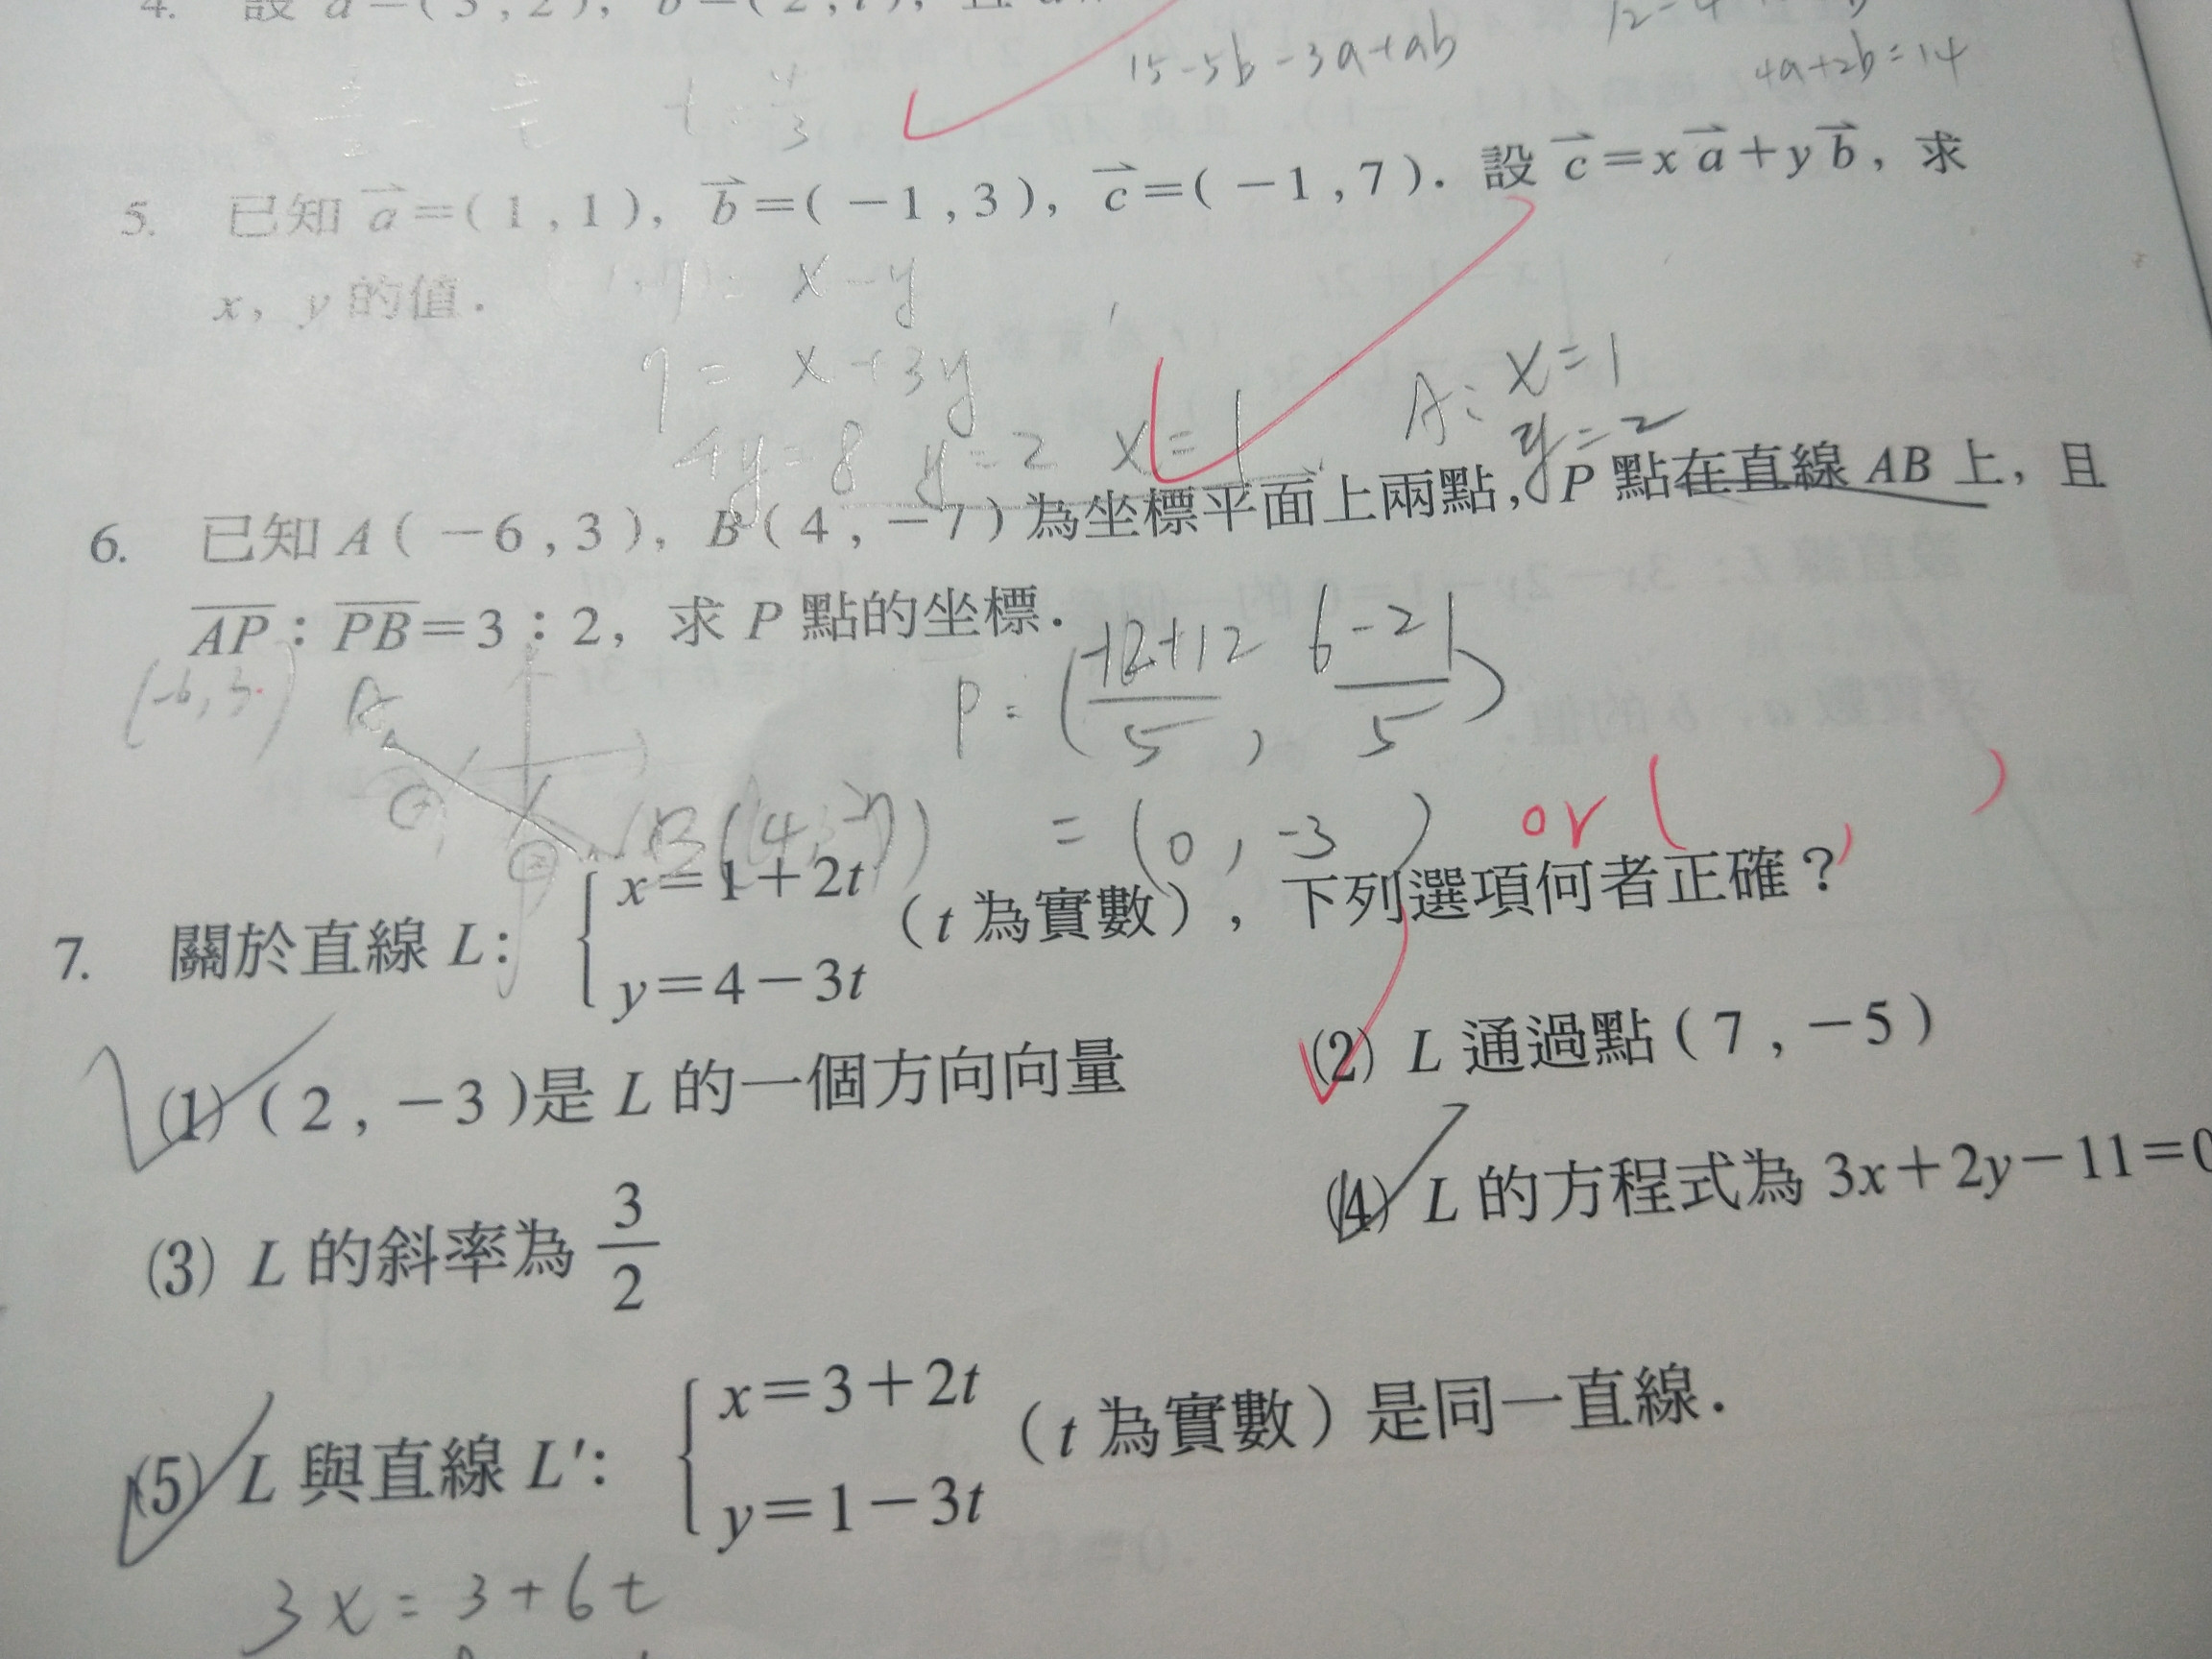 4. 設 a=(3,2), b=(2,t), 且 a
12-4
15-5b-3a+ab
4a+2b=14
t=4/3
5. 已知 a=(1,1), b=(-1,3), c=(-1,7). 設 c=xa+yb, 求
x, y 的值.
-1=x-y
7=x+3y
4y=8 y=2 x=1
A: x=1
y=2
6. 已知 A(-6,3), B(4,-7)為坐標平面上兩點, P 點在直線 AB 上, 且
AP:PB=3:2, 求 P 點的坐標.
(-6,3) A
P=(-12+12/5, 6-21/5)
B(4,-7)
=(0,-3) or ( , )
7. 關於直線 L: { x=1+2t
y=4-3t (t 為實數), 下列選項何者正確?
(1) (2,-3)是 L 的一個方向向量 (2) L 通過點(7,-5)
(3) L 的斜率為 3/2 (4) L 的方程式為 3x+2y-11=0
(5) L 與直線 L': { x=3+2t
y=1-3t (t 為實數)是同一直線.
3x=3+6t